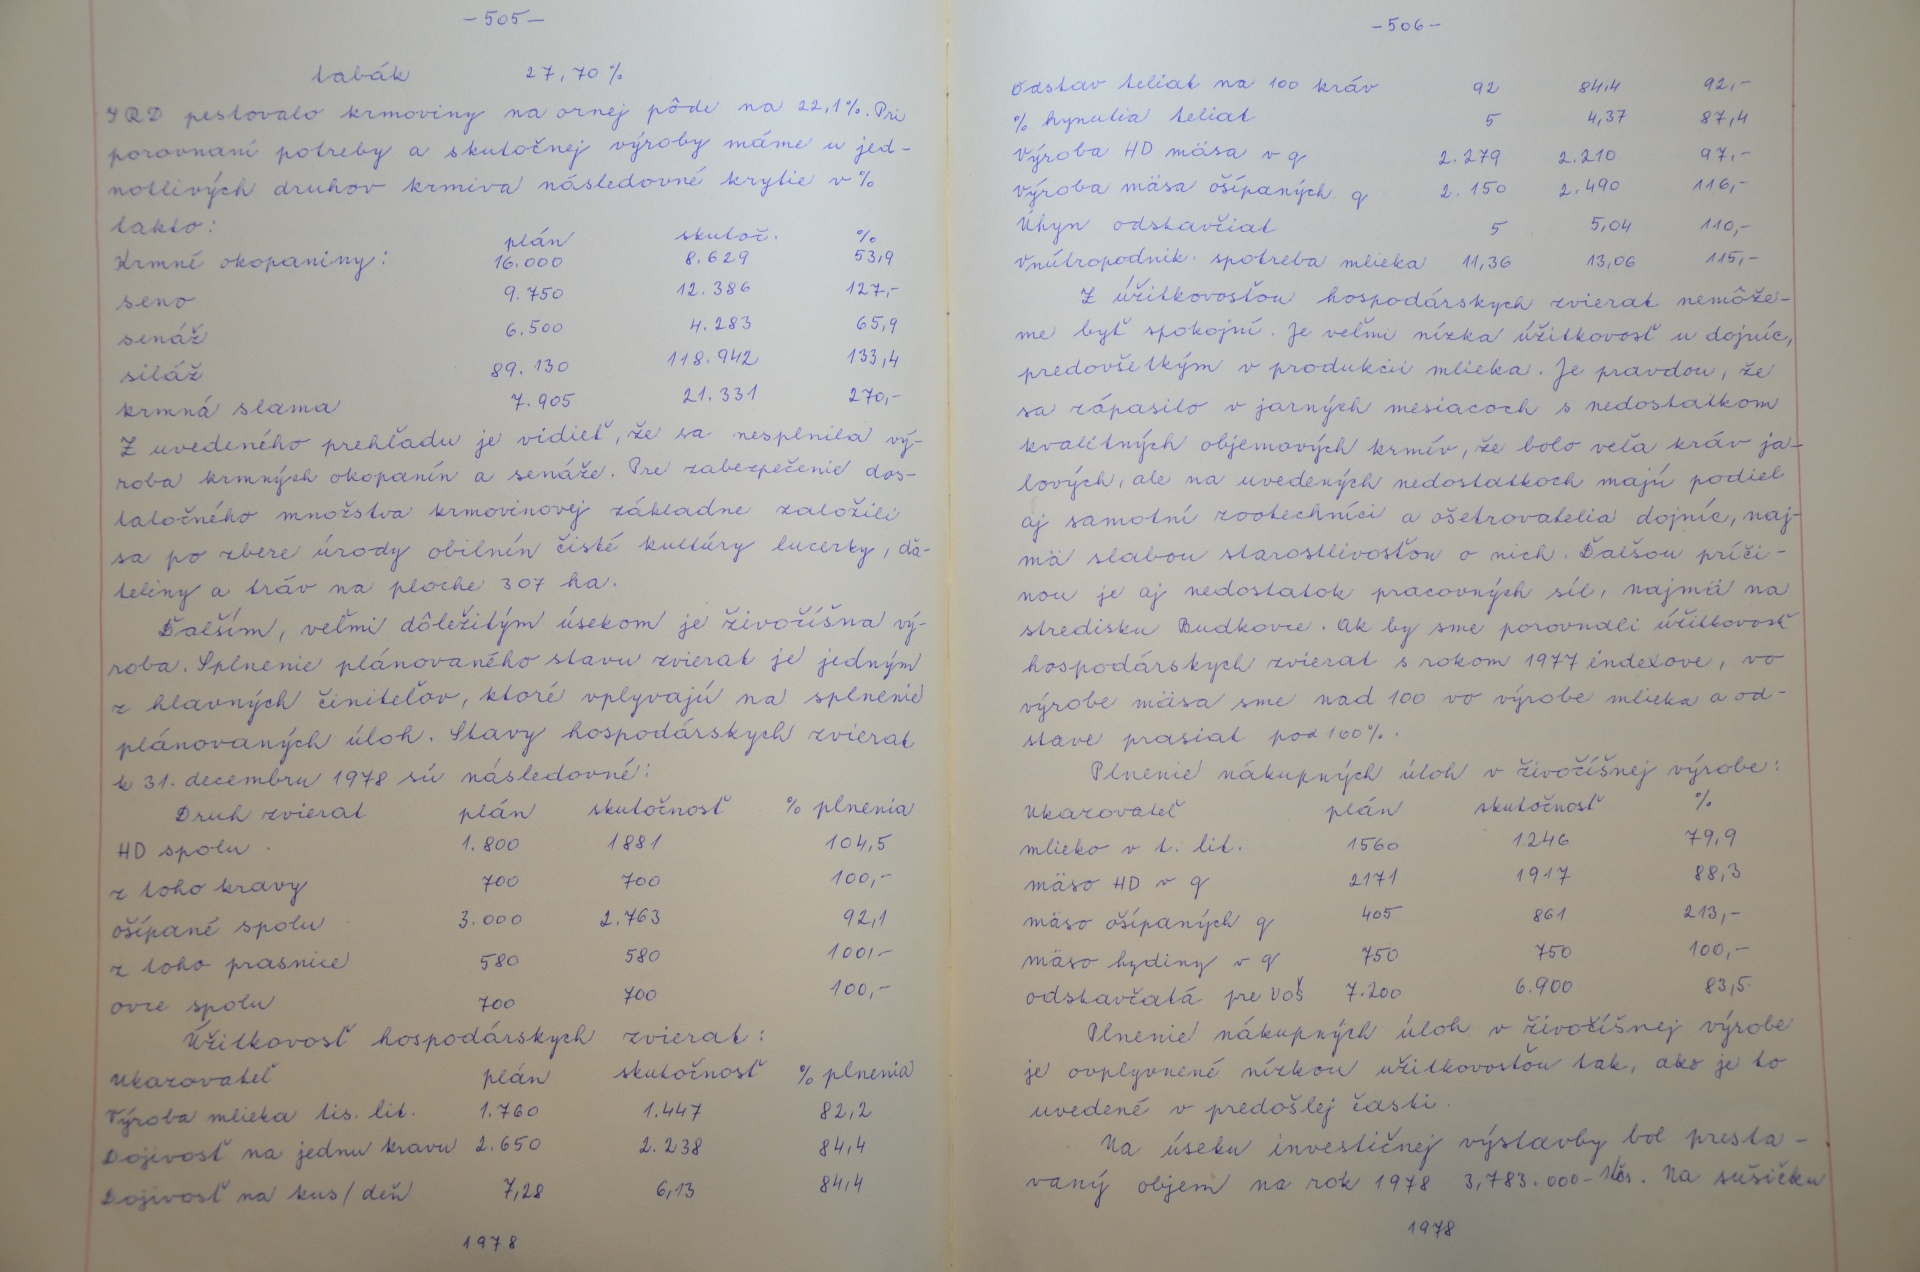 -505-
tabák 27,70%
JRD pestovalo krmoviny na ornej pôde na 22,1%. Pri
porovnaní potreby a skutočnej výroby máme u jed-
notlivých druhov krmiva následovné krytie v %
takto:
plán skutoč. %
Krmné okopaniny: 16.000 8.629 53,9
seno 9.750 12.386 127,-
senáž 6.500 4.283 65,9
siláž 89.130 118.942 133,4
krmná slama 7.905 21.331 270,-
Z uvedeného prehľadu je vidieť, že sa nesplnila vý-
roba krmných okopanín a senáže. Pre zabezpečenie dos-
tatočného množstva krmovinovej základne založili
sa po zbere úrody obilnín čisté kultúry lucerky, ďa-
teliny a tráv na ploche 307 ha.
Ďalším, veľmi dôležitým úsekom je živočíšna vý-
roba. Splnenie plánovaného stavu zvierat je jedným
z hlavných činiteľov, ktoré vplyvajú na splnenie
plánovaných úloh. Stavy hospodárskych zvierat
k 31. decembru 1978 sú následovné:
Druh zvierat plán skutočnosť % plnenia
HD spolu 1.800 1881 104,5
z toho kravy 700 700 100,-
ošípané spolu 3.000 2.763 92,1
z toho prasnice 580 580 100,-
ovce spolu 700 700 100,-
Úžitkovosť hospodárskych zvierat:
Ukazovateľ plán skutočnosť % plnenia
Výroba mlieka tis. lit. 1.760 1.447 82,2
Dojivosť na jednu kravu 2.650 2.238 84,4
Dojivosť na kus/deň 7,28 6,13 84,4
1978
-506-
Odstav teliat na 100 kráv 92 84,4 92,-
% hynutia teliat 5 4,37 87,4
Výroba HD mäsa v q 2.279 2.210 97,-
Výroba mäsa ošípaných q 2.150 2.490 116,-
Úhyn odstavčiat 5 5,04 110,-
Vnútropodnik. spotreba mlieka 11,36 13,06 115,-
Z úžitkovosťou hospodárskych zvierat nemôže-
me byť spokojní. Je veľmi nízka úžitkovosť u dojníc,
predovšetkým v produkcii mlieka. Je pravdou, že
sa zápasilo v jarných mesiacoch s nedostatkom
kvalitných objemových krmív, že bolo veľa kráv ja-
lových, ale na uvedených nedostatkoch majú podiel
aj samotní zootechníci a ošetrovatelia dojníc, naj-
mä slabou starostlivosťou o nich. Ďalšou príči-
nou je aj nedostatok pracovných síl, najmä na
stredisku Budkovce. Ak by sme porovnali úžitkovosť
hospodárskych zvierat s rokom 1977 indexove, vo
výrobe mäsa sme nad 100 vo výrobe mlieka a od-
stave prasiat pod 100%.
Plnenie nákupných úloh v živočíšnej výrobe:
Ukazovateľ plán skutočnosť %
mlieko v t. lit. 1560 1246 79,9
mäso HD v q 2171 1917 88,3
mäso ošípaných q 405 861 213,-
mäso hydiny v q 750 750 100,-
odstavčatá pre VOŠ 7.200 6.900 83,5
Plnenie nákupných úloh v živočíšnej výrobe
je ovplyvnené nízkou užitkovosťou tak, ako je to
uvedené v predošlej časti.
Na úseku investičnej výstavby bol presta-
vaný objem na rok 1978 3,783.000-Kčs. Na sušičku
1978